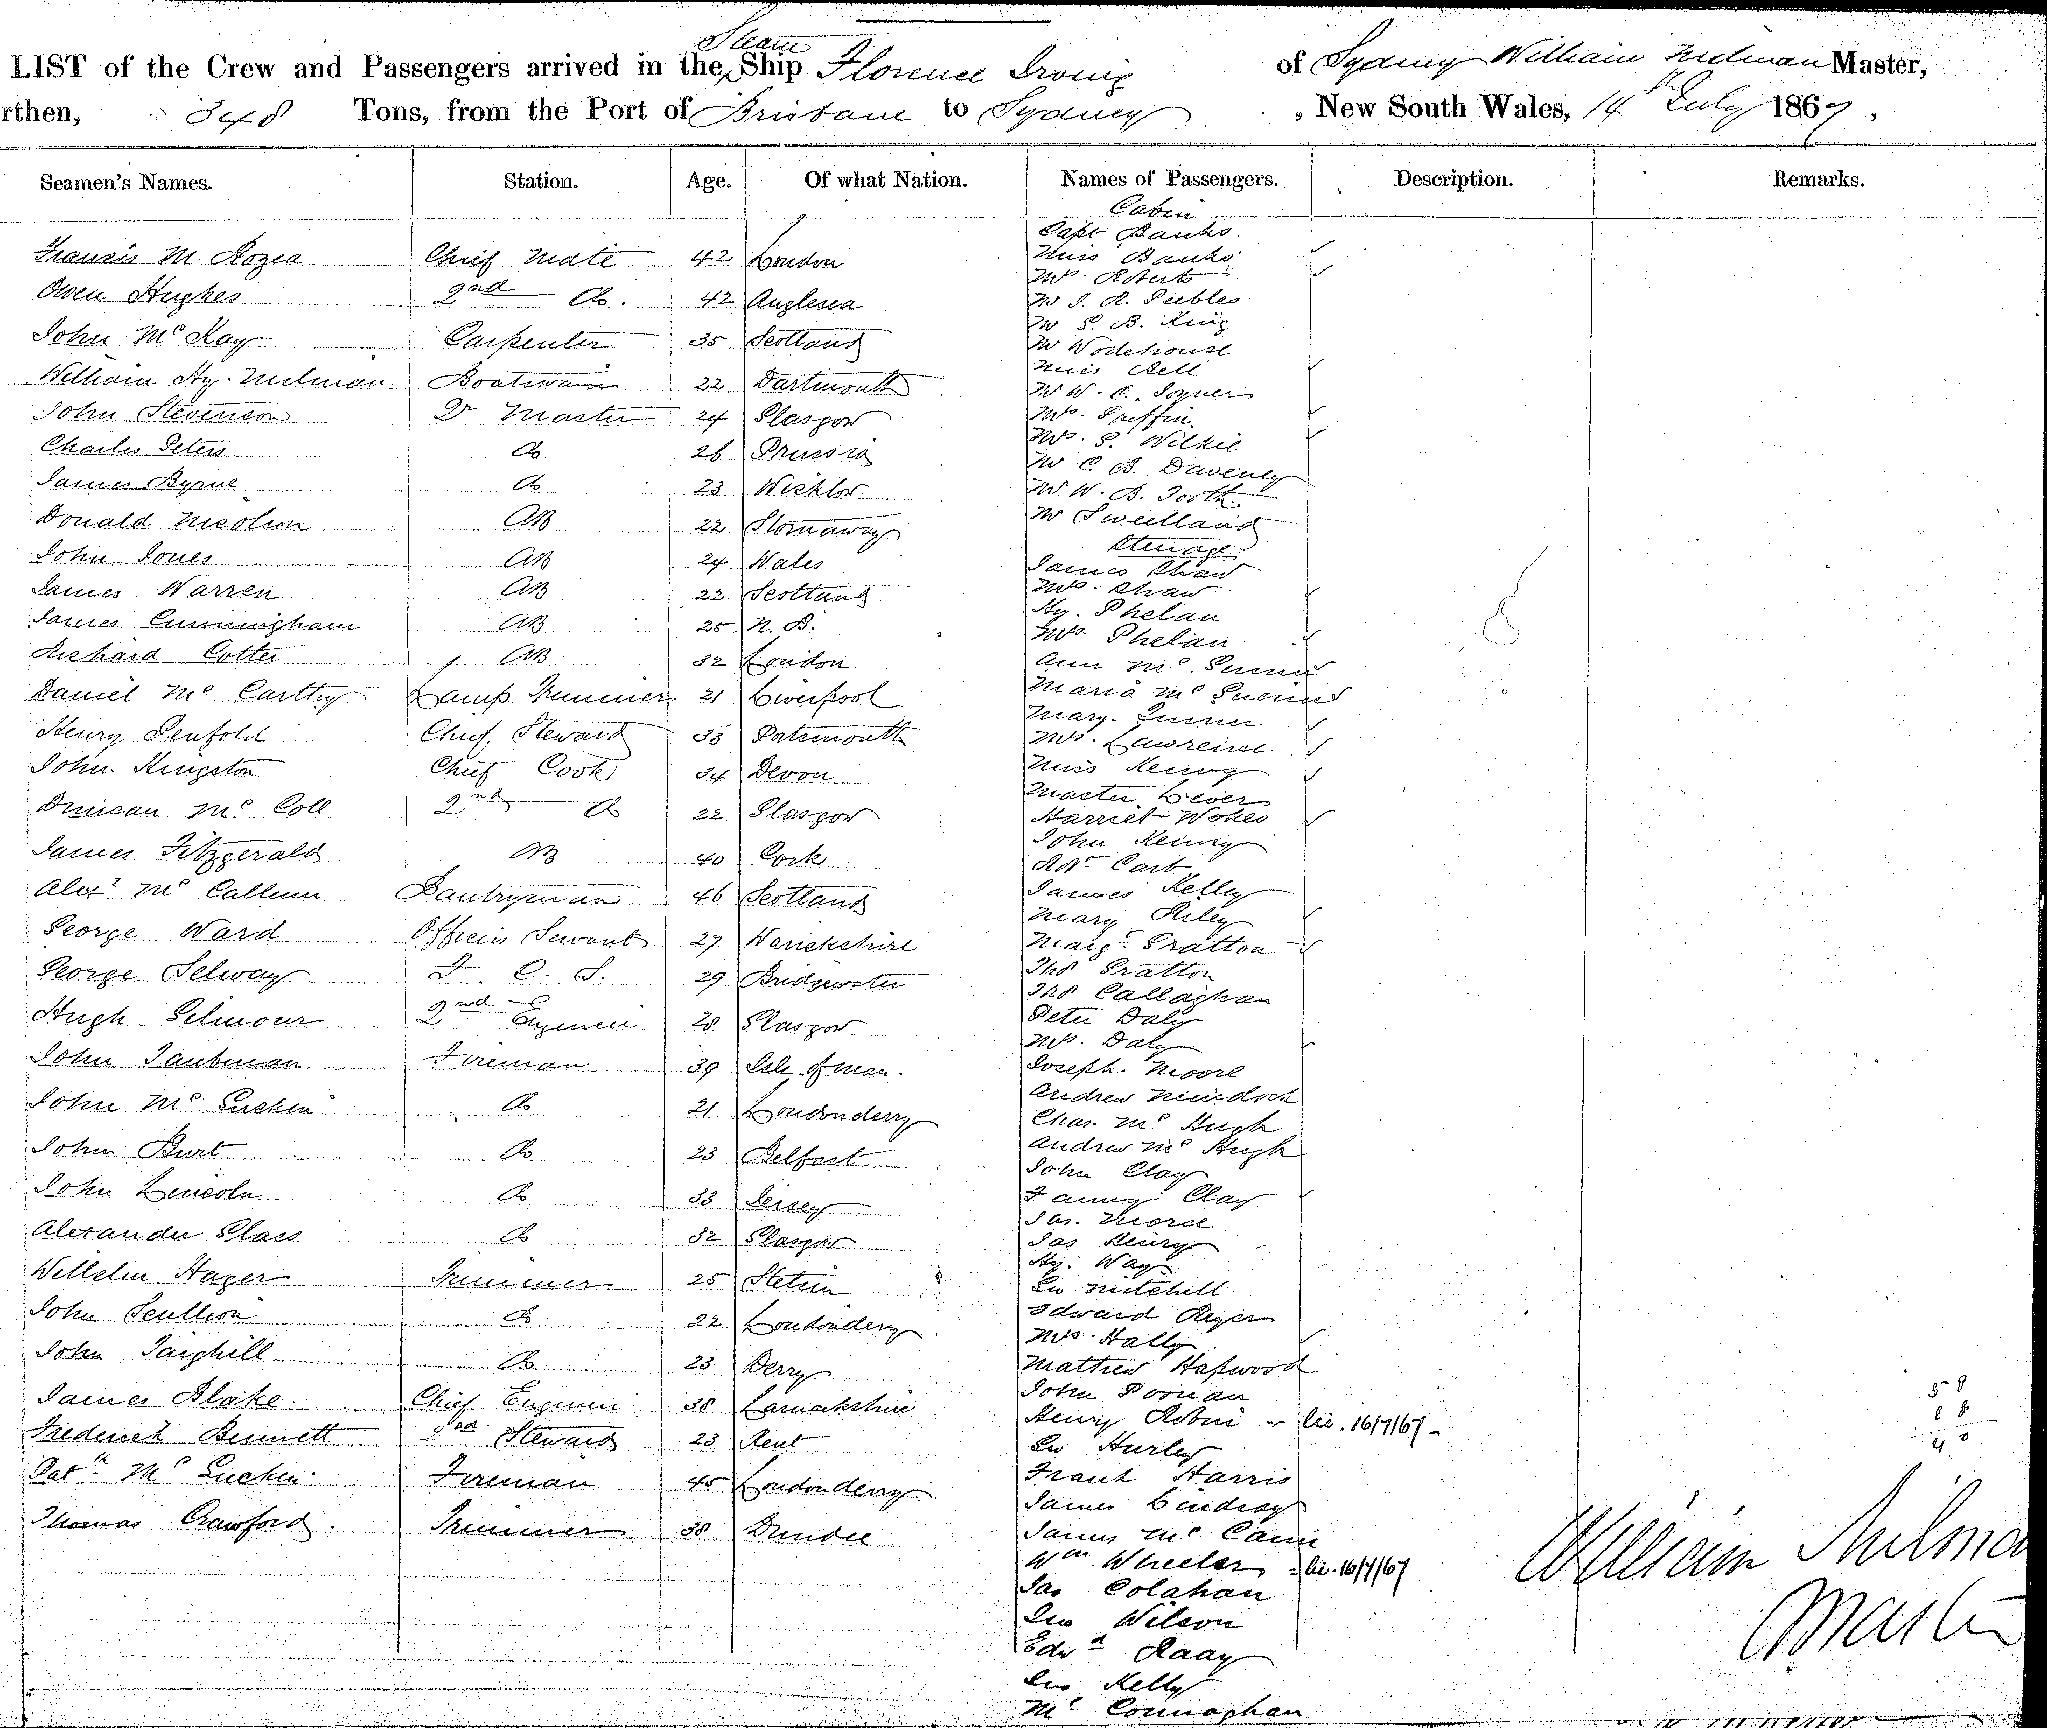 Steam
LIST of the Crew and Passengers arrived in the Ship Florence Irving of Sydney William Milman Master,
rthen, 348 Tons, from the Port of Brisbane to Sydney, New South Wales, 14th July 1867.
Seamen's Names. Station. Age. Of what Nation. Names of Passengers. Description. Remarks.
Cabin
Capt Banks
Francis M Chief Mate 42 London
Miss Banks
Mrs Roberts
Owen Hughes 2nd Do. 42 Anglesea
Mr J. R. Peebles
Mr S. B. King
John McKay Carpenter 35 Scotland
Mr Wodehouse
Miss Bell
William Hy. Milman Boatswain 22 Dartmouth
Mr W. C.
John Stevenson Qr Master 24 Glasgow
Mrs. Griffin
Mrs. G. Wilkie
Charles Peters Do 26 Prussia
Mr C. B. Daveney
James Byrne Do 23 Wicklow
Mr. W. B. Tooth
Donald Nicolson AB 22 Stornaway
Mr Sweetland
Steerage
John Jones AB 24 Wales
James Shaw
Mrs. Shaw
James Warren AB 22 Scotland
Hy. Phelan
James Cunningham AB 25 N. B.
Mrs Phelan
Richard Cotter AB 32 London
Ann Mc
Maria Mc
Daniel McCarthy Lamp Trimmer 21 Liverpool
Mary
Henry Penfold Chief Steward 33 Patrmouth
Mrs. Lawreine
John Kingston Chief Cook 34 Devon
Miss Henry
Master Lever
Duncan McColl 2nd Do 22 Glasgow
Harriet
John Henry
James Fitzgerald AB 40 Cork
Robt Carb
Alexr McCallum Pantryman 46 Scotland
James Kelly
Mary Riley
George Ward Officers Servant 27 Warickshire
Margt Gratton
George Selway F. C. S. 29 Bridgewater
Thos Gratton
Thos Callaghan
Hugh Gilmour 2nd Engineer 28 Glasgow
Peter Daly
Mrs. Daly
John Taubman Fireman 39 Isle of Man.
Joseph Moore
Andrew Murdoch
John McGuckin Do 21 Londonderry
Chas. McHugh
Andrew McHugh
John Burt Do 23 Belfast
John Clay
John Lincoln Do 33 Jersey
Fanny Clay
Jas. Morse
Alexander Glass Do 32 Glasgow
Jas Henry
Hy. Way
Wilhelm Hager Trimmer 25 Stetin
Geo Mitchell
John Scullion Do 22 Londonderry
Edward Roger
Mrs Hally
John Do 23 Derry
Matthew Hapwood
John Doonan
James Blake Chief Engineer 38 Lanarkshire
Henry - lic. 16/7/67 -
Frederick Bennett 3rd Steward 23 Kent
Geo Hurley
Patk McGuckin Fireman 45 Londonderry
Frank Harris
James Lindsay
Thomas Crawford. Trimmer 38 Dundee
James McCann
Wm Wheeler - lic. 16/7/67
Jas Colahan
Geo Wilson
Edwd Raay
Geo Kelly
Mc Connaghan
William Milman
Master